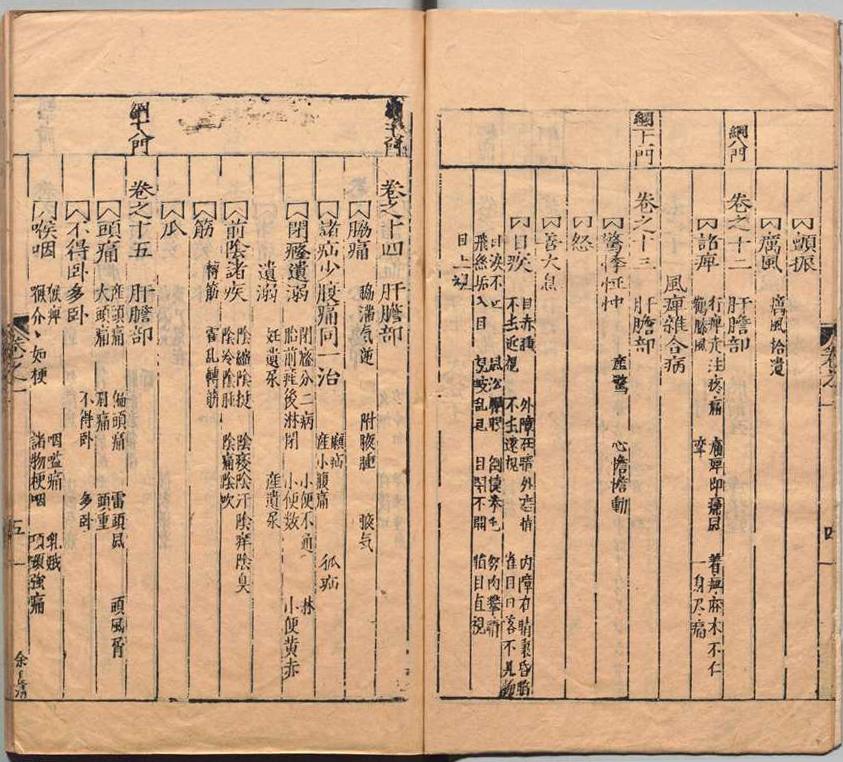 顫振
癘風 癘風拾遺
綱八門
卷之十二 肝膽部
諸痺 行痺走注疼痛 痛痺即痛風 着痺麻木不仁
鶴膝風 攣 一身尽痛
風痺雜合病
綱十一門
卷之十三 肝膽部
驚悸怔忡 產驚 心憺憺動
怒
善太息
目疾 目赤腫 外障在睛外遮睛 內障在睛裏昏暗
不能近視 不能遠視 雀目日落不見物
目淚不止 風沿爛眼 倒睫拳毛 努肉攀睛
飛絲入目 視岐乱見 目閉不開 目直視
目上視
四
卷之十四 肝膽部
脇痛 脇滿氣逆 附腋腫 腋氣
諸疝少腹痛同一治 㿗疝 狐疝
產小腹痛
閉癃遺溺 閉癃分二病 小便不通 淋
胎前產後淋閉 小便數 小便黃赤
遺溺 妊遺尿 產遺尿
前陰諸疾 陰縮陰挺 陰痿陰汗陰痒陰臭
陰冷陰腫 陰痛陰吹
筋 轉筋 霍亂轉筋
爪
綱十八門
卷之十五 肝膽部
頭痛 產頭痛 偏頭痛 雷頭風 頭風屑
大頭痛 肩痛 頭重
不得卧多卧 不得卧 多卧
喉咽 喉痺 咽嗌痛 乳蛾
諸物梗咽 項頸強痛
卷之一
五